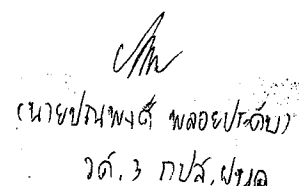 (นายปณพงศ์ พลอยประดับ)
วศ.3 กปส.ฝบค